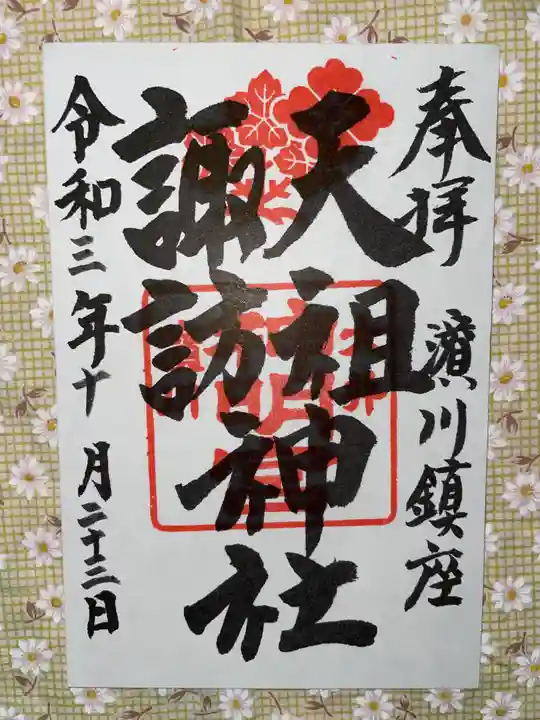 奉拝 濵川鎮座
天祖神社
諏訪
令和三年十月二十三日